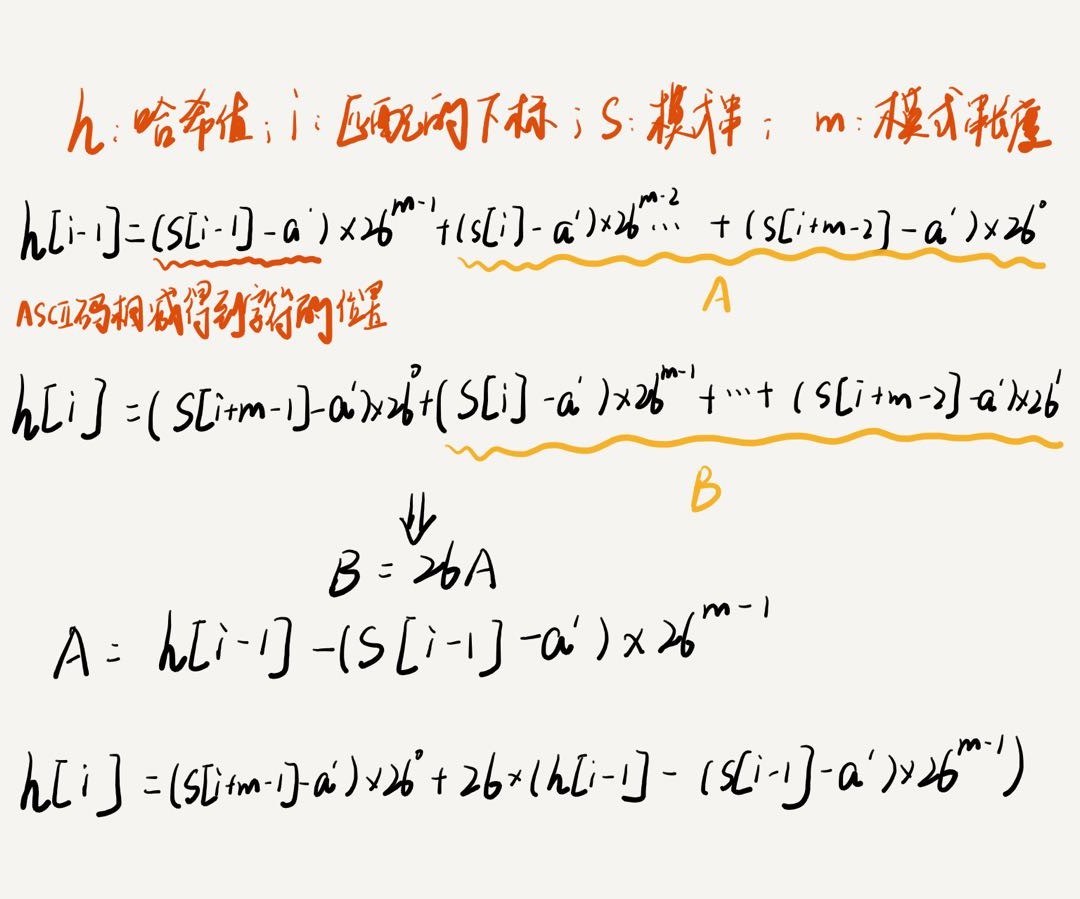 h: 哈希值; i: 匹配的下标; S: 模式串; m: 模式串长度
h[i-1]=(S[i-1]-a')×26^{m-1}+(s[i]-a')×26^{m-2}... +(s[i+m-2]-a')×26^0
A
ASCII码相减得到字符的位置
h[i]=(S[i+m-1]-a')×26^0+(S[i]-a')×26^{m-1}+...+(s[i+m-2]-a')×26^1
B
⇓
B=26A
A=h[i-1]-(S[i-1]-a')×26^{m-1}
h[i]=(s[i+m-1]-a')×26^0+26×(h[i-1]-(s[i-1]-a')×26^{m-1})